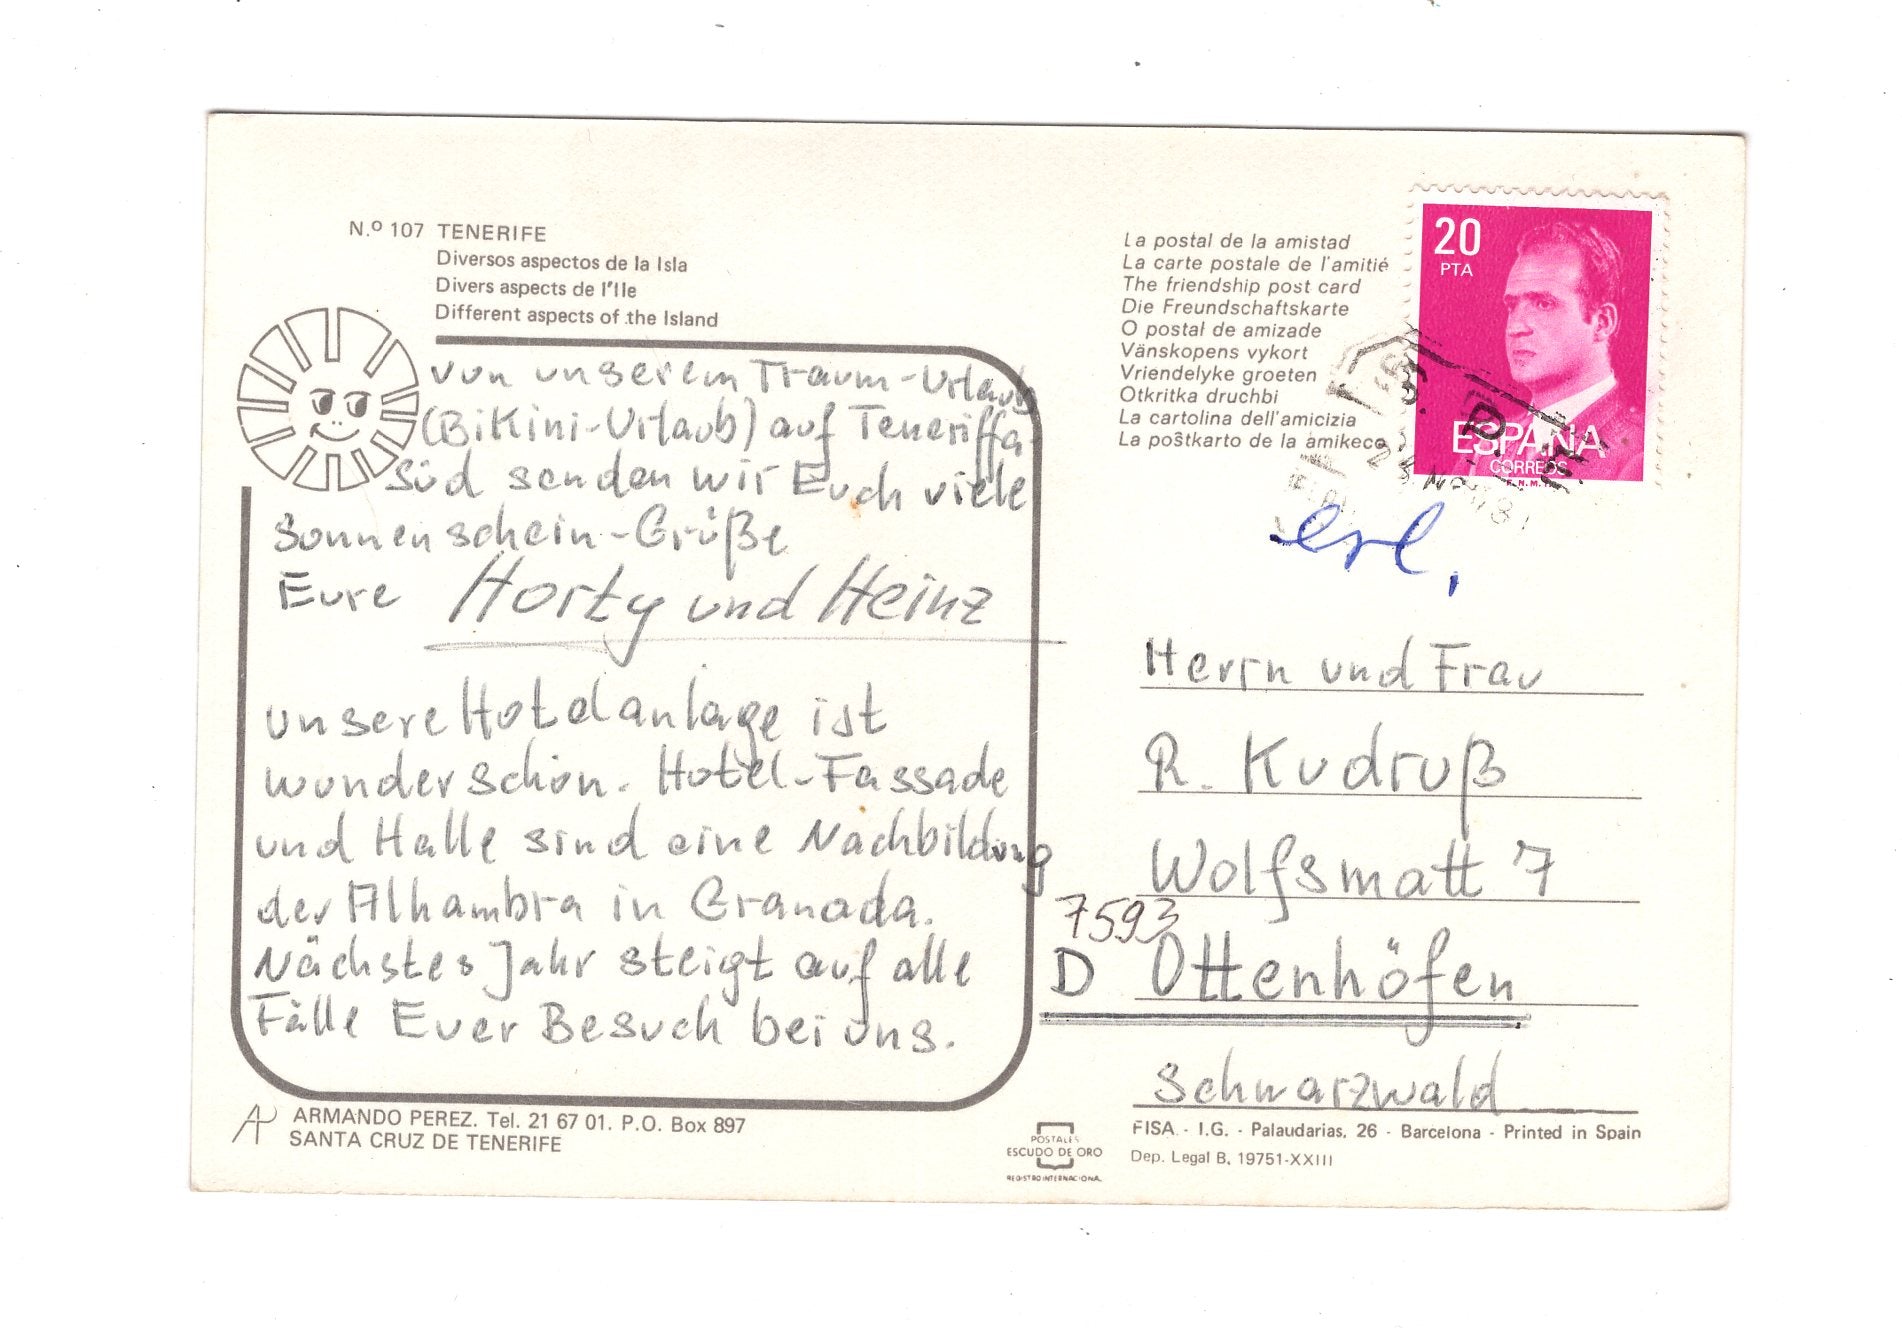 N.º 107 TENERIFE
Diversos aspectos de la Isla
Divers aspects de l'Ile
Different aspects of the Island
von unserem Traum-Urlaub
(Bikini-Urlaub) auf Teneriffa-
Süd senden wir Euch viele
Sonnenschein-Grüße
Eure Horty und Heinz
unsere Hotelanlage ist
wunderschön. Hotel-Fassade
und Halle sind eine Nachbildung
der Alhambra in Granada.
Nächstes Jahr steigt auf alle
Fälle Euer Besuch bei uns.
ARMANDO PEREZ. Tel. 21 67 01. P.O. Box 897
SANTA CRUZ DE TENERIFE
La postal de la amistad
La carte postale de l'amitié
The friendship post card
Die Freundschaftskarte
O postal de amizade
Vänskopens vykort
Vriendelyke groeten
Otkritka druchbi
La cartolina dell'amicizia
La poŝtkarto de la amikeco
20
PTA
ESPAÑA
CORREOS
F.N.M.T.
erl.
Herrn und Frau
R. Kudruß
Wolfsmatt 7
7593
D Ottenhöfen
Schwarzwald
POSTALES
ESCUDO DE ORO
REGISTRO INTERNACIONAL
FISA - I.G. - Palaudarias, 26 - Barcelona - Printed in Spain
Dep. Legal B. 19751-XXIII